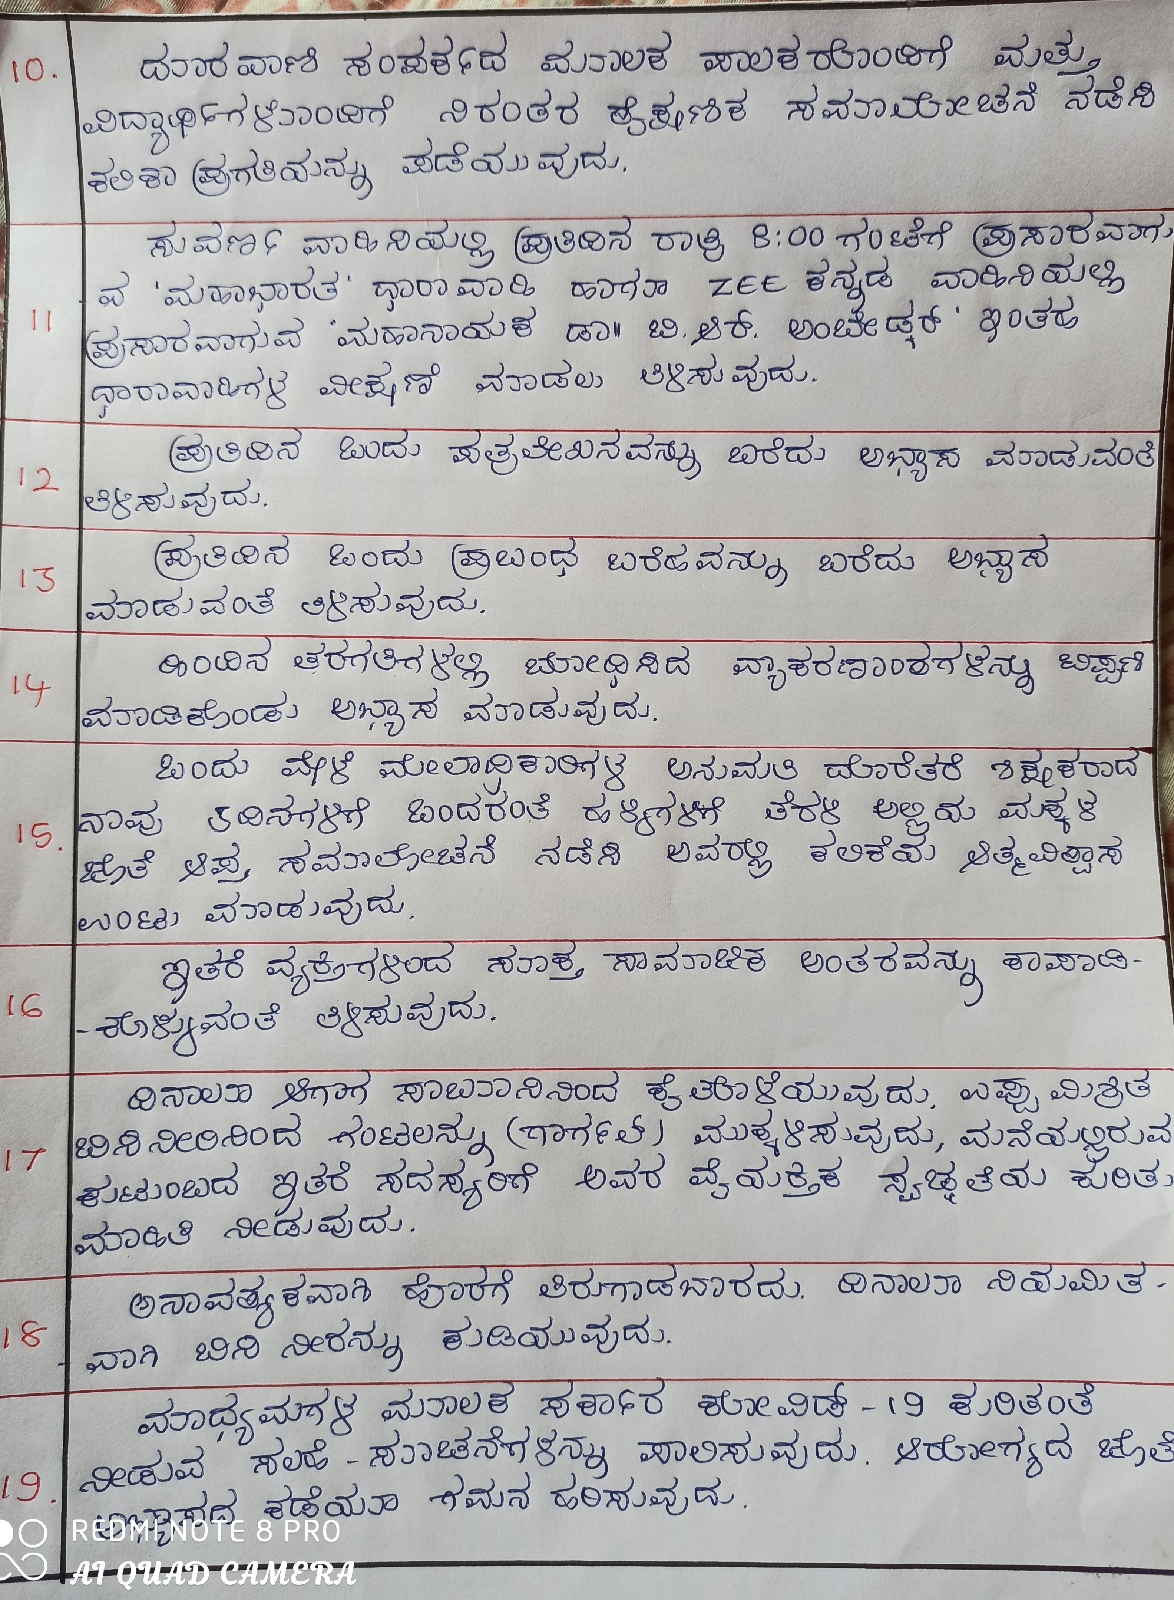 10. ದೂರವಾಣಿ ಸಂಪರ್ಕದ ಮೂಲಕ ಪಾಲಕರೊಂದಿಗೆ ಮತ್ತು
ವಿದ್ಯಾರ್ಥಿಗಳೊಂದಿಗೆ ನಿರಂತರ ಶೈಕ್ಷಣಿಕ ಸಮಾಲೋಚನೆ ನಡೆಸಿ
ಕಲಿಕಾ ಪ್ರಗತಿಯನ್ನು ಪಡೆಯುವುದು.
ಸುವರ್ಣ ವಾಹಿನಿಯಲ್ಲಿ ಪ್ರತಿದಿನ ರಾತ್ರಿ 8:00 ಗಂಟೆಗೆ ಪ್ರಸಾರವಾಗು
ವ 'ಮಹಾಭಾರತ' ಧಾರಾವಾಹಿ ಹಾಗೂ ZEE ಕನ್ನಡ ವಾಹಿನಿಯಲ್ಲಿ
11 ಪ್ರಸಾರವಾಗುವ 'ಮಹಾನಾಯಕ ಡಾ|| ಬಿ.ಆರ್. ಅಂಬೇಡ್ಕರ್' ಇಂತಹ
ಧಾರಾವಾಹಿಗಳ ವೀಕ್ಷಣೆ ಮಾಡಲು ತಿಳಿಸುವುದು.
ಪ್ರತಿದಿನ ಒಂದು ಪತ್ರಲೇಖನವನ್ನು ಬರೆದು ಅಭ್ಯಾಸ ಮಾಡುವಂತೆ
12 ತಿಳಿಸುವುದು.
13 ಪ್ರತಿದಿನ ಒಂದು ಪ್ರಬಂಧ ಬರೆಹವನ್ನು ಬರೆದು ಅಭ್ಯಾಸ
ಮಾಡುವಂತೆ ತಿಳಿಸುವುದು.
14 ಹಿಂದಿನ ತರಗತಿಗಳಲ್ಲಿ ಬೋಧಿಸಿದ ವ್ಯಾಕರಣಾಂಶಗಳನ್ನು ಟಿಪ್ಪಣಿ
ಮಾಡಿಕೊಂಡು ಅಭ್ಯಾಸ ಮಾಡುವುದು.
ಒಂದು ವೇಳೆ ಮೇಲಾಧಿಕಾರಿಗಳ ಅನುಮತಿ ದೊರೆತರೆ ಶಿಕ್ಷಕರಾದ
15. ನಾವು 5ದಿನಗಳಿಗೆ ಒಂದರಂತೆ ಹಳ್ಳಿಗಳಿಗೆ ತೆರಳಿ ಅಲ್ಲಿಯ ಮಕ್ಕಳ
ಜೊತೆ ಆಪ್ತ ಸಮಾಲೋಚನೆ ನಡೆಸಿ ಅವರಲ್ಲಿ ಕಲಿಕೆಯ ಆತ್ಮವಿಶ್ವಾಸ
ಉಂಟು ಮಾಡುವುದು.
16 ಇತರೆ ವ್ಯಕ್ತಿಗಳಿಂದ ಸೂಕ್ತ ಸಾಮಾಜಿಕ ಅಂತರವನ್ನು ಕಾಪಾಡಿ-
-ಕೊಳ್ಳುವಂತೆ ತಿಳಿಸುವುದು.
ದಿನಾಲೂ ಆಗಾಗ ಸಾಬೂನಿನಿಂದ ಕೈತೊಳೆಯುವುದು, ಉಪ್ಪುಮಿಶ್ರಿತ
17 ಬಿಸಿನೀರಿನಿಂದ ಗಂಟಲನ್ನು (ಗಾರ್ಗಲ್) ಮುಕ್ಕಳಿಸುವುದು, ಮನೆಯಲ್ಲಿರುವ
ಕುಟುಂಬದ ಇತರೆ ಸದಸ್ಯರಿಗೆ ಅವರ ವೈಯಕ್ತಿಕ ಸ್ವಚ್ಛತೆಯ ಕುರಿತು
ಮಾಹಿತಿ ನೀಡುವುದು.
18 ಅನಾವಶ್ಯಕವಾಗಿ ಹೊರಗೆ ತಿರುಗಾಡಬಾರದು. ದಿನಾಲೂ ನಿಯಮಿತ-
-ವಾಗಿ ಬಿಸಿ ನೀರನ್ನು ಕುಡಿಯುವುದು.
ಮಾಧ್ಯಮಗಳ ಮೂಲಕ ಸರ್ಕಾರ ಕೋವಿಡ್-19 ಕುರಿತಂತೆ
19. ನೀಡುವ ಸಲಹೆ-ಸೂಚನೆಗಳನ್ನು ಪಾಲಿಸುವುದು. ಆರೋಗ್ಯದ ಜೊತೆ
ಅಭ್ಯಾಸದ ಕಡೆಯೂ ಗಮನ ಹರಿಸುವುದು.
REDMI NOTE 8 PRO
AI QUAD CAMERA